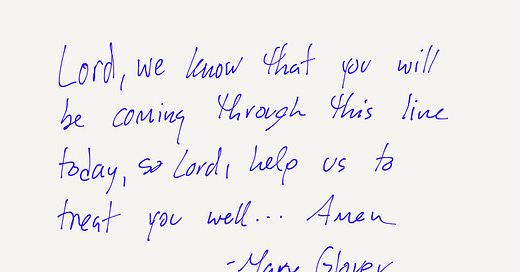 Lord, we know that you will
be coming through this line
today, so Lord, help us to
treat you well... Amen
-Mary Glover